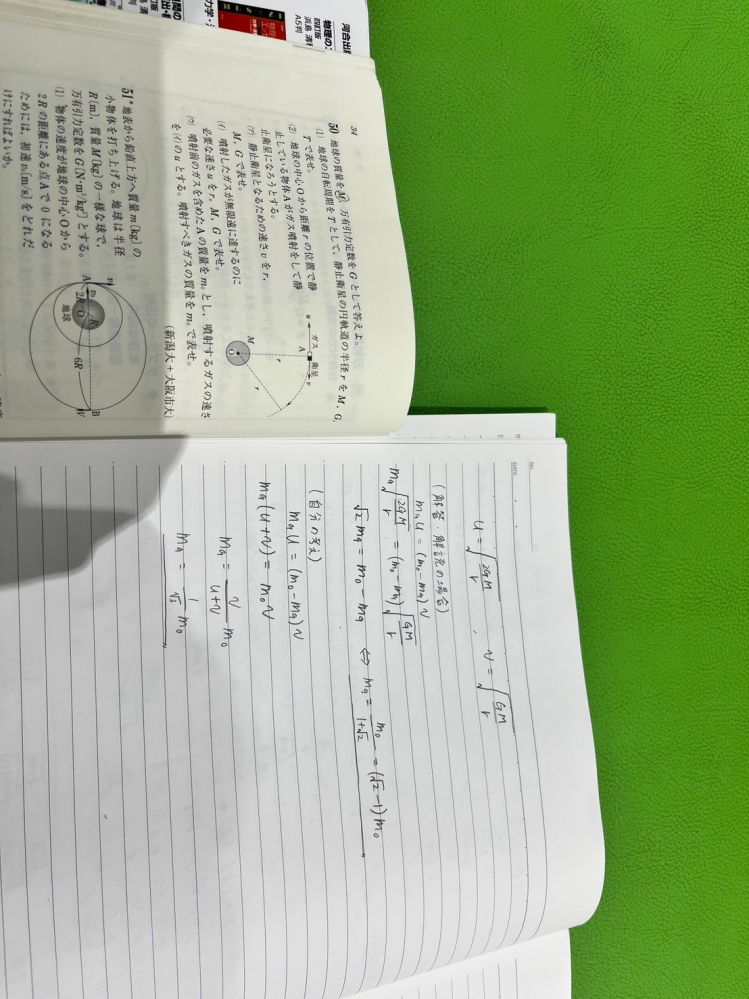 河合出
物理の
四訂版
浜島 清利
A5判
34
50 地球の質量をM，万有引力定数をGとして答えよ。
(1) 地球の自転周期をTとして，静止衛星の円軌道の半径rをM，G，
Tで表せ。
(2) 地球の中心Oから距離rの位置で静
止している物体Aがガス噴射をして静
止衛星になろうとする。
(ア) 静止衛星となるための速さvをr，
M，Gで表せ。
(イ) 噴射したガスが無限遠に達するのに
必要な速さuをr，M，Gで表せ。
(ウ) 噴射前のガスを含めたAの質量をm₀とし，噴射するガスの速さ
を(イ)のuとする。噴射すべきガスの質量をm₀で表せ。
(新潟大＋大阪市大)
u ガス 衛星 v
A
r
M
O
r
51* 地表から鉛直上方へ質量m〔kg〕の
小物体を打ち上げる。地球は半径
R〔m〕，質量M〔kg〕の一様な球で，
万有引力定数をG〔N・m²/kg²〕とする。
(1) 物体の速度が地球の中心Oから
2Rの距離にある点Aで0になる
ためには，初速v₀〔m/s〕をどれだ
けにすればよいか。
A
2R
O
R
地球
6R
B
No.
DATE
u = √(2GM/r) , v = √(GM/r)
(解答・解説の場合)
m_g u = (m₀ − m_g) v
m_g √(2GM/r) = (m₀ − m_g) √(GM/r)
√2 m_g = m₀ − m_g ⇔ m_g = m₀/(1+√2) = (√2 − 1) m₀
(自分の考え)
m_g u = (m₀ − m_g) v
m_g (u + v) = m₀ v
m_g = v/(u+v) m₀
m_g = 1/√3 m₀